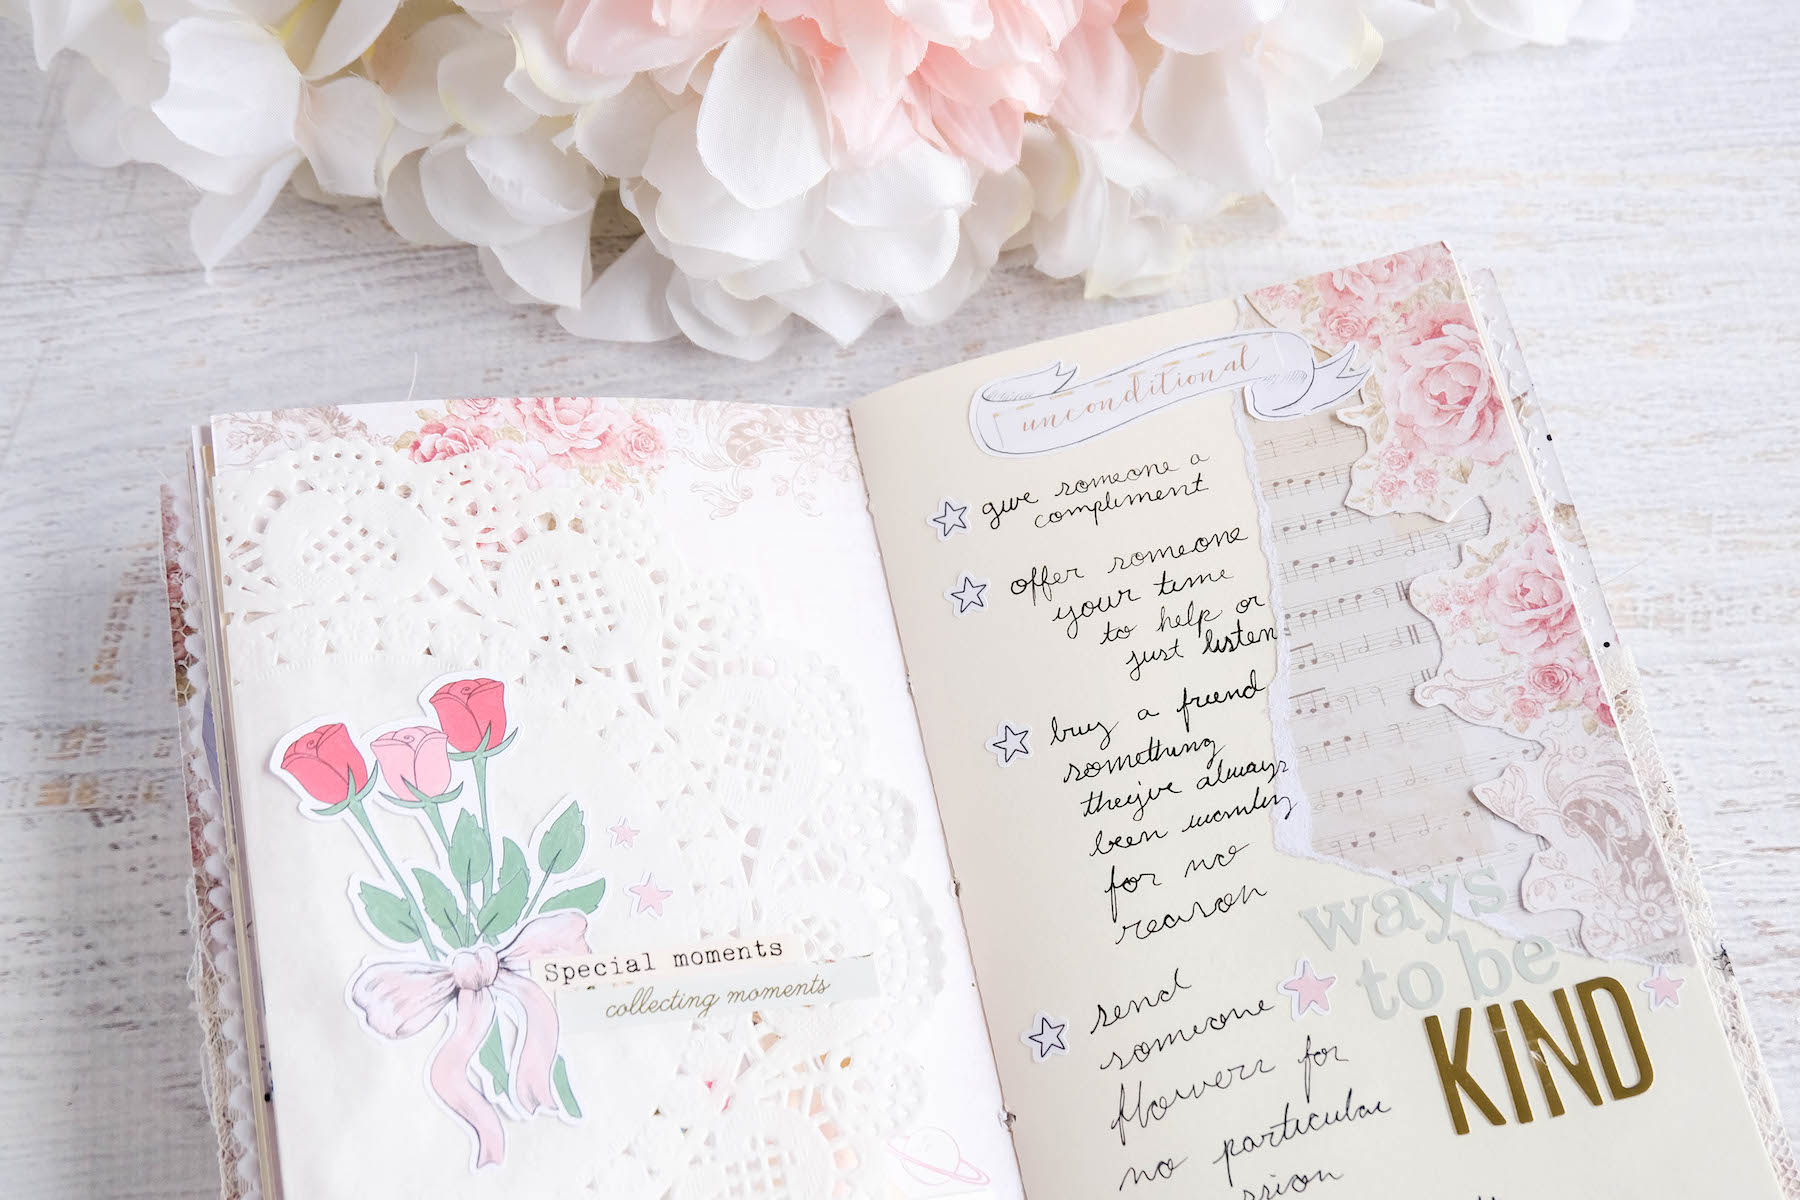 Special moments
collecting moments
unconditional
give someone a
compliment
offer someone
your time
to help or
just listen
buy a friend
something
they've always
been wanting
for no
reason
send
someone
flowers for
no particular
ways
to be
KIND